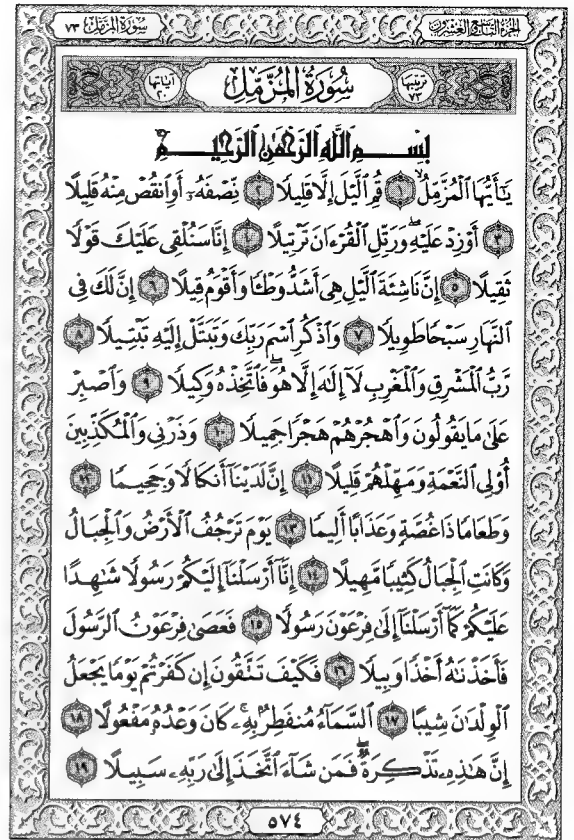 الجزء التاسع والعشرون
سورة المزمل ٧٣
ترتيبها ٧٣
سُورَةُ الْمُزَّمِّلِ
آياتها ٢٠
بِسْمِ اللَّهِ الرَّحْمَٰنِ الرَّحِيمِ
يَٰٓأَيُّهَا ٱلْمُزَّمِّلُ ١ قُمِ ٱلَّيْلَ إِلَّا قَلِيلًا ٢ نِّصْفَهُۥٓ أَوِ ٱنقُصْ مِنْهُ قَلِيلًا
٣ أَوْ زِدْ عَلَيْهِ وَرَتِّلِ ٱلْقُرْءَانَ تَرْتِيلًا ٤ إِنَّا سَنُلْقِى عَلَيْكَ قَوْلًا
ثَقِيلًا ٥ إِنَّ نَاشِئَةَ ٱلَّيْلِ هِىَ أَشَدُّ وَطْـًٔا وَأَقْوَمُ قِيلًا ٦ إِنَّ لَكَ فِى
ٱلنَّهَارِ سَبْحًا طَوِيلًا ٧ وَٱذْكُرِ ٱسْمَ رَبِّكَ وَتَبَتَّلْ إِلَيْهِ تَبْتِيلًا ٨
رَّبُّ ٱلْمَشْرِقِ وَٱلْمَغْرِبِ لَآ إِلَٰهَ إِلَّا هُوَ فَٱتَّخِذْهُ وَكِيلًا ٩ وَٱصْبِرْ
عَلَىٰ مَا يَقُولُونَ وَٱهْجُرْهُمْ هَجْرًا جَمِيلًا ١٠ وَذَرْنِى وَٱلْمُكَذِّبِينَ
أُو۟لِى ٱلنَّعْمَةِ وَمَهِّلْهُمْ قَلِيلًا ١١ إِنَّ لَدَيْنَآ أَنكَالًا وَجَحِيمًا ١٢
وَطَعَامًا ذَا غُصَّةٍ وَعَذَابًا أَلِيمًا ١٣ يَوْمَ تَرْجُفُ ٱلْأَرْضُ وَٱلْجِبَالُ
وَكَانَتِ ٱلْجِبَالُ كَثِيبًا مَّهِيلًا ١٤ إِنَّآ أَرْسَلْنَآ إِلَيْكُمْ رَسُولًا شَٰهِدًا
عَلَيْكُمْ كَمَآ أَرْسَلْنَآ إِلَىٰ فِرْعَوْنَ رَسُولًا ١٥ فَعَصَىٰ فِرْعَوْنُ ٱلرَّسُولَ
فَأَخَذْنَٰهُ أَخْذًا وَبِيلًا ١٦ فَكَيْفَ تَتَّقُونَ إِن كَفَرْتُمْ يَوْمًا يَجْعَلُ
ٱلْوِلْدَٰنَ شِيبًا ١٧ ٱلسَّمَآءُ مُنفَطِرٌۢ بِهِۦ ۚ كَانَ وَعْدُهُۥ مَفْعُولًا ١٨
إِنَّ هَٰذِهِۦ تَذْكِرَةٌ ۖ فَمَن شَآءَ ٱتَّخَذَ إِلَىٰ رَبِّهِۦ سَبِيلًا ١٩
٥٧٤